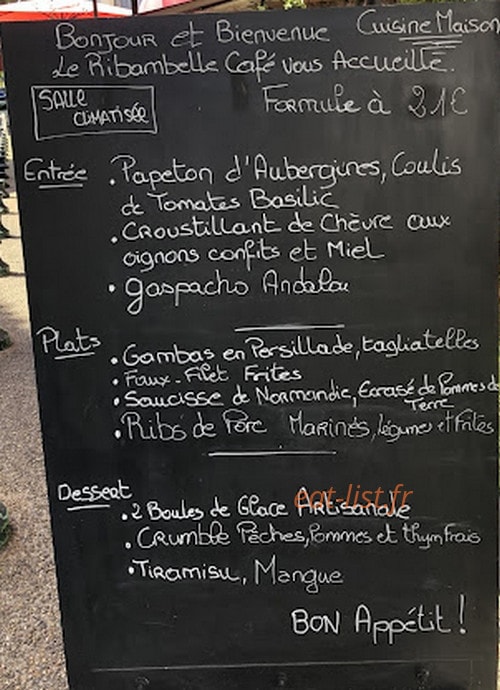 Bonjour et Bienvenue Cuisine Maison
Le Ribambelle Café vous Accueille.
Salle
climatisée
Formule à 21€
Entrée
• Papeton d'Aubergines, Coulis
de Tomates Basilic
• Croustillant de Chèvre aux
oignons confits et Miel
• gaspacho Andalou
Plats
• Gambas en Persillade, tagliatelles
• Faux-Filet Frites
• Saucisse de Normandie, Ecrasé de Pommes de
Terre
• Ribs de Porc Marinés, légumes et Frites
Dessert
• 2 Boules de Glace Artisanale
eat-list.fr
• Crumble Pêches, Pommes et thym frais
• Tiramisu, Mangue
Bon Appétit !